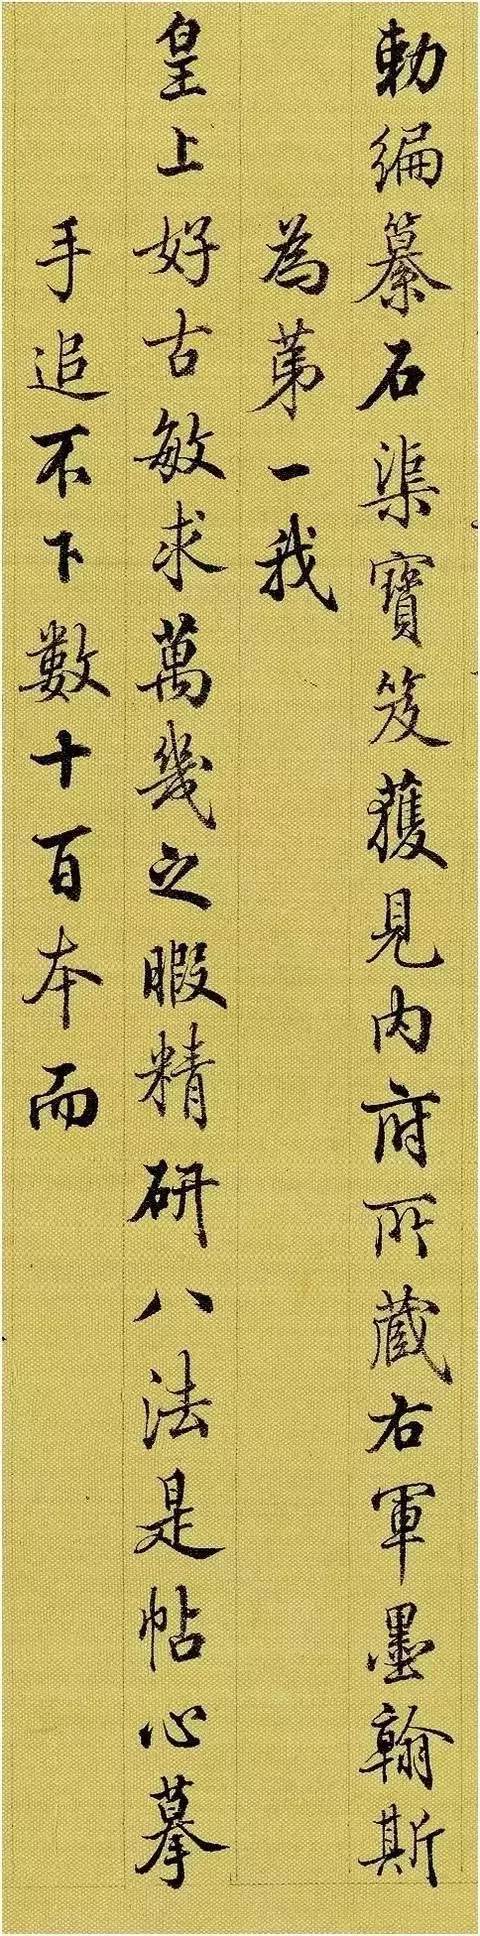 勅編纂石渠寶笈獲見內府所蔵右軍墨翰斯
為苐一我
皇上好古敏求萬幾之暇精研八法是帖心摹
手追不下數十百本而